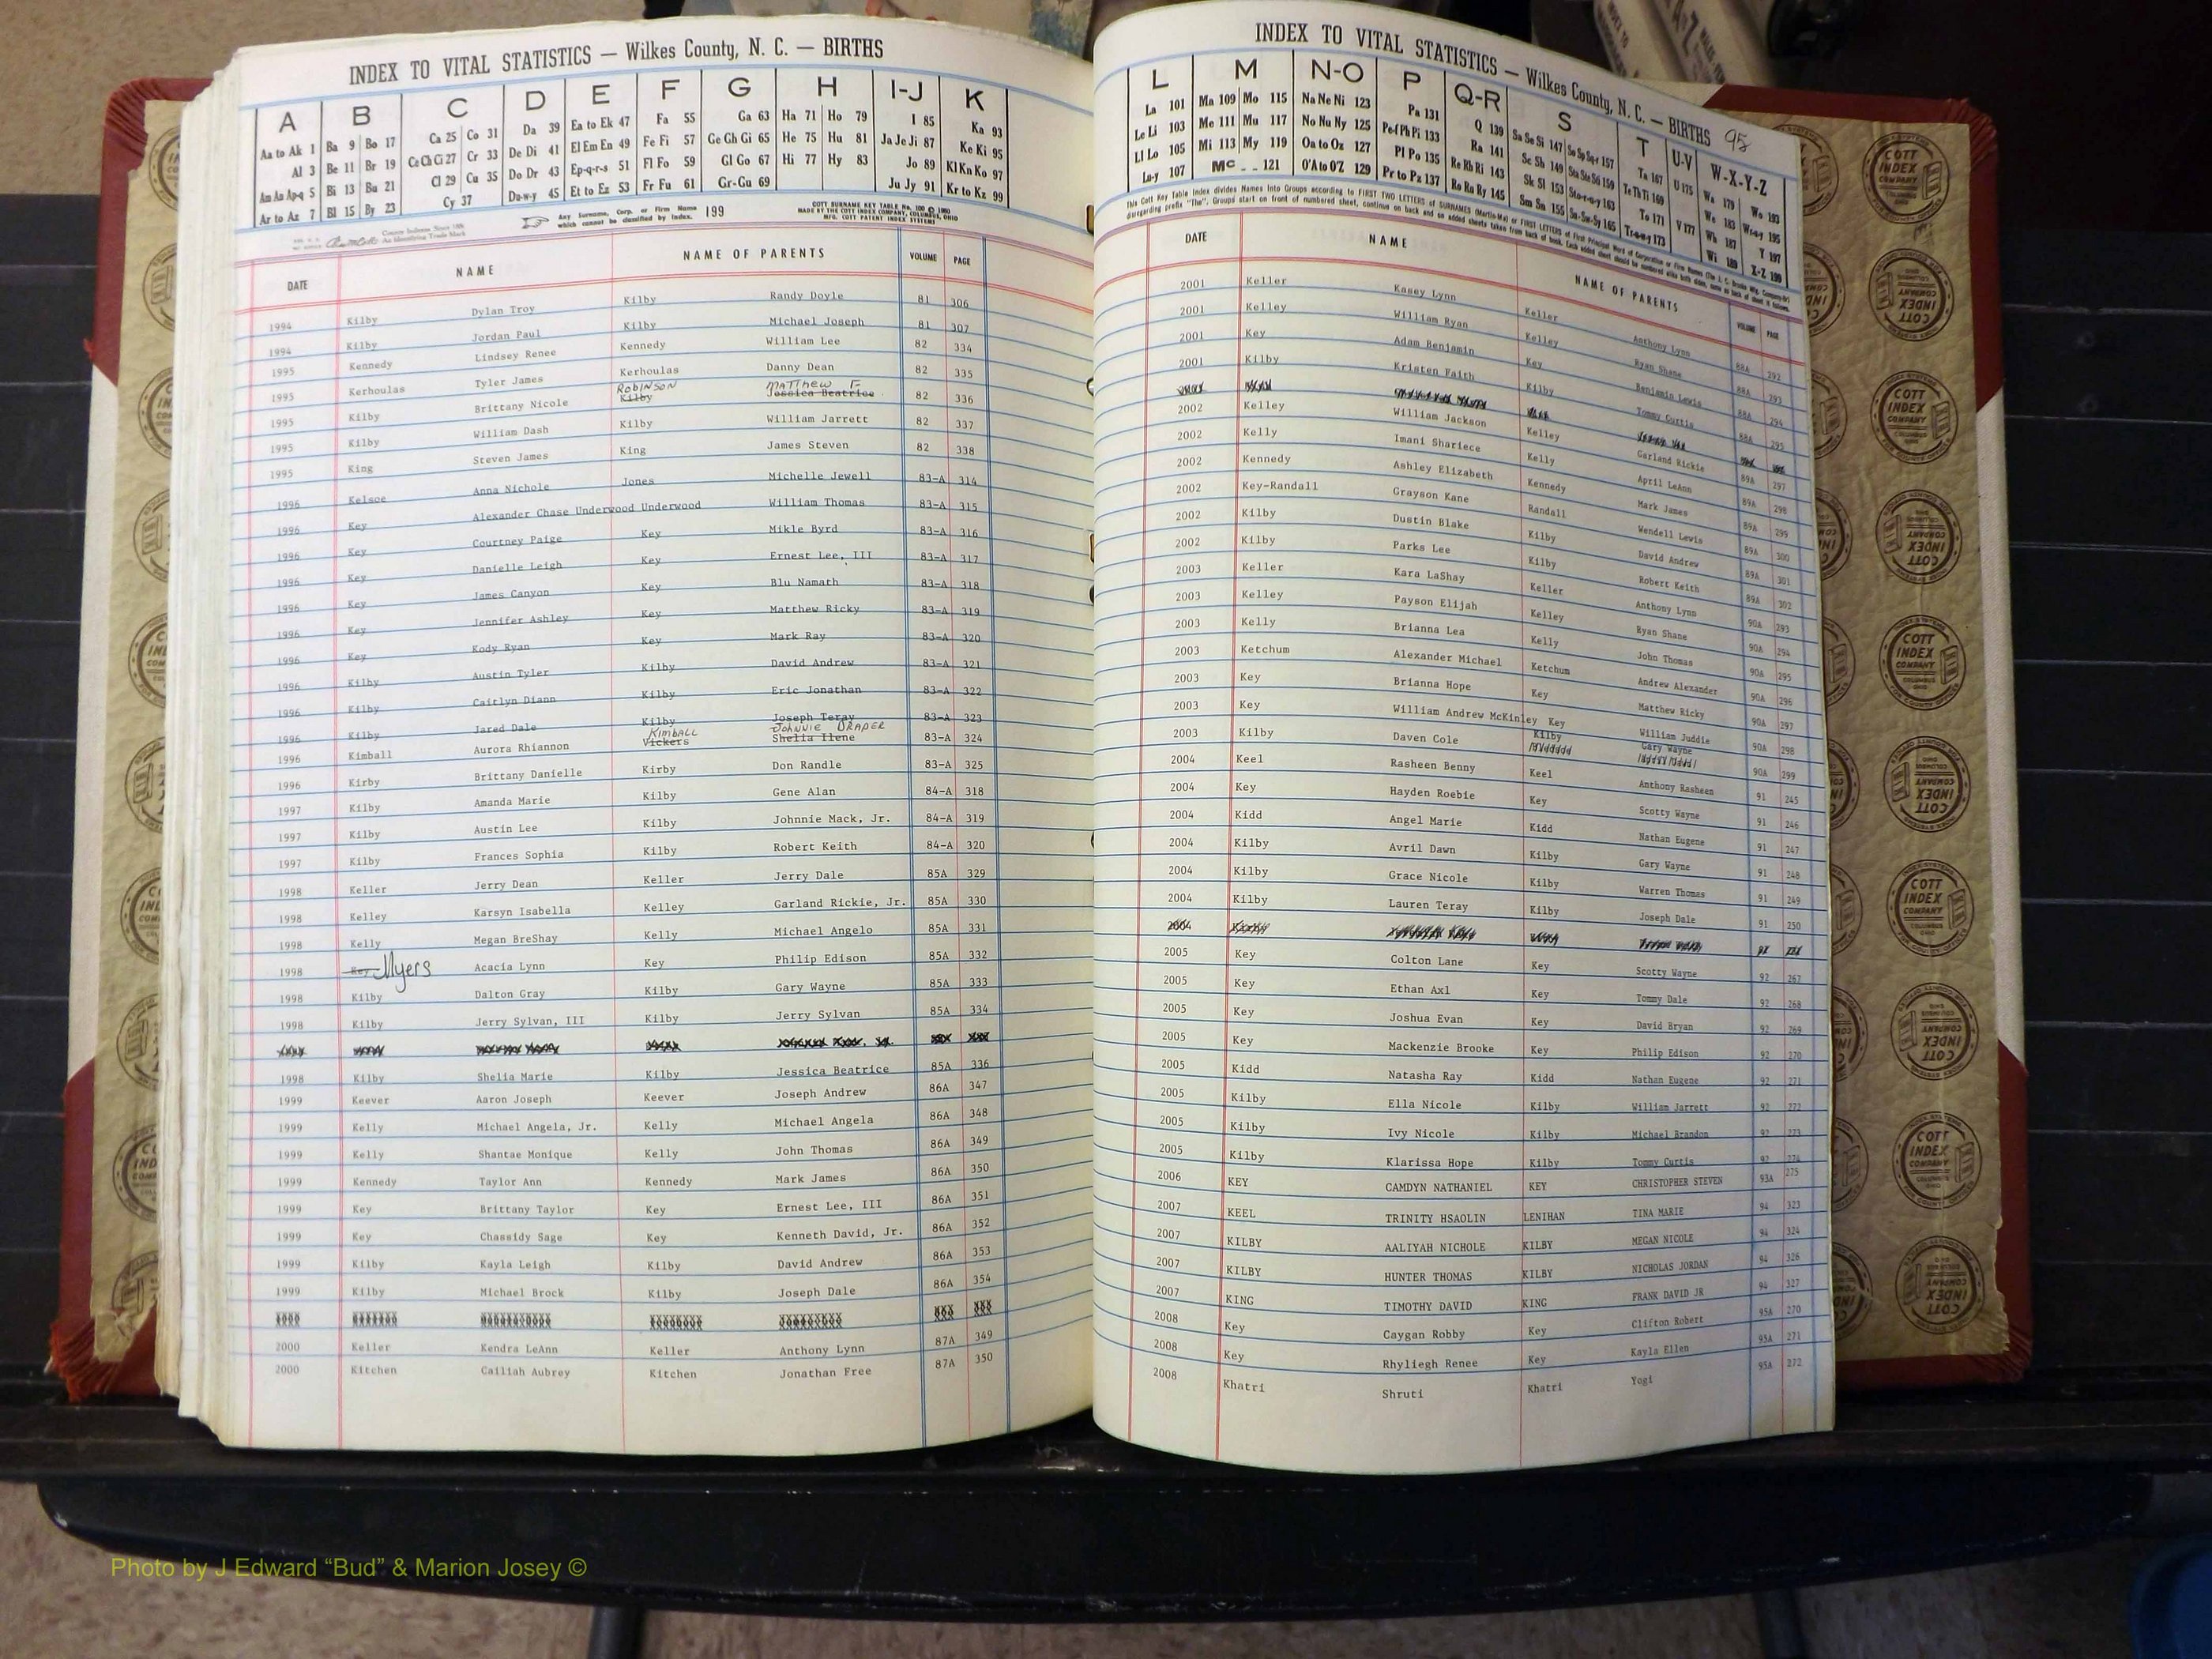 INDEX TO VITAL STATISTICS — Wilkes County, N. C. — BIRTHS
A B C D E F G H I-J K
Aa to Ak 1 Ba 9 Bo 17 Ca 25 Co 31 Da 39 Ea to Ek 47 Fa 55 Ga 63 Ha 71 Ho 79 I 85 Ka 93
Al 3 Be 11 Br 19 Ce Ch Ci 27 Cr 33 De Di 41 El Em En 49 Fe Fi 57 Ge Gh Gi 65 He 75 Hu 81 Ja Je Ji 87 Ke Ki 95
Am An Ap-q 5 Bi 13 Bu 21 Cl 29 Cu 35 Do Dr 43 Ep-q-r-s 51 Fl Fo 59 Gl Go 67 Hi 77 Hy 83 Jo 89 Kl Kn Ko 97
Ar to Az 7 Bl 15 By 23 Cy 37 Du-w-y 45 Et to Ez 53 Fr Fu 61 Gr-Gu 69 Ju Jy 91 Kr to Kz 99
Any Surname, Corp. or Firm Name which cannot be classified by Index. 199
COTT SURNAME KEY TABLE No. 100 © 1960
MADE BY THE COTT INDEX COMPANY, COLUMBUS, OHIO
MFG. COTT PATENT INDEX SYSTEMS
DATE NAME NAME OF PARENTS VOLUME PAGE
1994 Kilby Dylan Troy Kilby Randy Doyle 81 306
1994 Kilby Jordan Paul Kilby Michael Joseph 81 307
1995 Kennedy Lindsey Renee Kennedy William Lee 82 334
1995 Kerhoulas Tyler James Kerhoulas Danny Dean 82 335
ROBINSON MATTHEW F
1995 Kilby Brittany Nicole Kilby Jessica Beatrice 82 336
1995 Kilby William Dash Kilby William Jarrett 82 337
1995 King Steven James King James Steven 82 338
1996 Kelsoe Anna Nichole Jones Michelle Jewell 83-A 314
1996 Key Alexander Chase Underwood Underwood William Thomas 83-A 315
1996 Key Courtney Paige Key Mikle Byrd 83-A 316
1996 Key Danielle Leigh Key Ernest Lee, III 83-A 317
1996 Key James Canyon Key Blu Namath 83-A 318
1996 Key Jennifer Ashley Key Matthew Ricky 83-A 319
1996 Key Kody Ryan Key Mark Ray 83-A 320
1996 Kilby Austin Tyler Kilby David Andrew 83-A 321
1996 Kilby Caitlyn Diann Kilby Eric Jonathan 83-A 322
1996 Kilby Jared Dale Kilby Joseph Teray 83-A 323
KIMBALL JOHNNIE DRAPER
1996 Kimball Aurora Rhiannon Vickers Shelia Ilene 83-A 324
1996 Kirby Brittany Danielle Kirby Don Randle 83-A 325
1997 Kilby Amanda Marie Kilby Gene Alan 84-A 318
1997 Kilby Austin Lee Kilby Johnnie Mack, Jr. 84-A 319
1997 Kilby Frances Sophia Kilby Robert Keith 84-A 320
1998 Keller Jerry Dean Keller Jerry Dale 85A 329
1998 Kelley Karsyn Isabella Kelley Garland Rickie, Jr. 85A 330
1998 Kelly Megan BreShay Kelly Michael Angelo 85A 331
1998 Key Myers Acacia Lynn Key Philip Edison 85A 332
1998 Kilby Dalton Gray Kilby Gary Wayne 85A 333
1998 Kilby Jerry Sylvan, III Kilby Jerry Sylvan 85A 334
1998 Kilby Shelia Marie Kilby Jessica Beatrice 85A 336
1999 Keever Aaron Joseph Keever Joseph Andrew 86A 347
1999 Kelly Michael Angela, Jr. Kelly Michael Angela 86A 348
1999 Kelly Shantae Monique Kelly John Thomas 86A 349
1999 Kennedy Taylor Ann Kennedy Mark James 86A 350
1999 Key Brittany Taylor Key Ernest Lee, III 86A 351
1999 Key Chassidy Sage Key Kenneth David, Jr. 86A 352
1999 Kilby Kayla Leigh Kilby David Andrew 86A 353
1999 Kilby Michael Brock Kilby Joseph Dale 86A 354
2000 Keller Kendra LeAnn Keller Anthony Lynn 87A 349
2000 Kitchen Cailiah Aubrey Kitchen Jonathan Free 87A 350
INDEX TO VITAL STATISTICS — Wilkes County, N. C. — BIRTHS 95
L M N-O P Q-R S T U-V W-X-Y-Z
La 101 Ma 109 Mo 115 Na Ne Ni 123 Pa 131 Q 139 Sa Se Si 147 So Sp Sq-r 157 Ta 167 U 175 Wa 179 Wo 193
Le Li 103 Me 111 Mu 117 No Nu Ny 125 Pe-f Ph Pi 133 Ra 141 Sc Sh 149 Sta Ste Sti 159 Te Th Ti 169 V 177 We 183 Wr-u-y 195
Ll Lo 105 Mi 113 My 119 Oa to Oz 127 Pl Po 135 Re Rh Ri 143 Sk Sl 153 Sto-r-u-y 163 To 171 Wh 187 Y 197
Lu-y 107 Mc 121 O'A to O'Z 129 Pr to Pz 137 Ro Ru Ry 145 Sm Sn 155 Su-Sw-Sy 165 Tr-u-w-y 173 Wi 189 X-Z 199
This Cott Key Table Index divides Names into Groups according to FIRST TWO LETTERS of SURNAMES (Martin-Ma) or FIRST LETTERS of First Principal Word of Corporation or Firm Names
disregarding prefix "The". Groups start on front of numbered sheet, continue on back and on added sheets taken from back of book.
DATE NAME NAME OF PARENTS VOLUME PAGE
2001 Keller Kasey Lynn Keller Anthony Lynn 88A 292
2001 Kelley William Ryan Kelley Ryan Shane 88A 293
2001 Key Adam Benjamin Key Benjamin Lewis 88A 294
2001 Kilby Kristen Faith Kilby Tommy Curtis 88A 295
2002 Kelley William Jackson Kelley Garland Rickie 89A 297
2002 Kelly Imani Shariece Kelly April LeAnn 89A 298
2002 Kennedy Ashley Elizabeth Kennedy Mark James 89A 299
2002 Key-Randall Grayson Kane Randall Wendell Lewis 89A 300
2002 Kilby Dustin Blake Kilby David Andrew 89A 301
2002 Kilby Parks Lee Kilby Robert Keith 89A 302
2003 Keller Kara LaShay Keller Anthony Lynn 90A 293
2003 Kelley Payson Elijah Kelley Ryan Shane 90A 294
2003 Kelly Brianna Lea Kelly John Thomas 90A 295
2003 Ketchum Alexander Michael Ketchum Andrew Alexander 90A 296
2003 Key Brianna Hope Key Matthew Ricky 90A 297
2003 Key William Andrew McKinley Key William Juddie 90A 298
2003 Kilby Daven Cole Kilby Gary Wayne 90A 299
2004 Keel Rasheen Benny Keel Anthony Rasheen 91 245
2004 Key Hayden Roebie Key Scotty Wayne 91 246
2004 Kidd Angel Marie Kidd Nathan Eugene 91 247
2004 Kilby Avril Dawn Kilby Gary Wayne 91 248
2004 Kilby Grace Nicole Kilby Warren Thomas 91 249
2004 Kilby Lauren Teray Kilby Joseph Dale 91 250
2004
2005 Key Colton Lane Key Scotty Wayne 92 267
2005 Key Ethan Axl Key Tommy Dale 92 268
2005 Key Joshua Evan Key David Bryan 92 269
2005 Key Mackenzie Brooke Key Philip Edison 92 270
2005 Kidd Natasha Ray Kidd Nathan Eugene 92 271
2005 Kilby Ella Nicole Kilby William Jarrett 92 272
2005 Kilby Ivy Nicole Kilby Michael Brandon 92 273
2005 Kilby Klarissa Hope Kilby Tommy Curtis 92 274
2006 KEY CAMDYN NATHANIEL KEY CHRISTOPHER STEVEN 93A 275
2007 KEEL TRINITY HSAOLIN LENIHAN TINA MARIE 94 323
2007 KILBY AALIYAH NICHOLE KILBY MEGAN NICOLE 94 324
2007 KILBY HUNTER THOMAS KILBY NICHOLAS JORDAN 94 326
2007 KING TIMOTHY DAVID KING FRANK DAVID JR 94 327
2008 Key Caygan Robby Key Clifton Robert 95A 270
2008 Key Rhyliegh Renee Key Kayla Ellen 95A 271
2008 Khatri Shruti Khatri Yogi 95A 272
COTT INDEX COMPANY COLUMBUS OHIO
Photo by J Edward “Bud” & Marion Josey ©